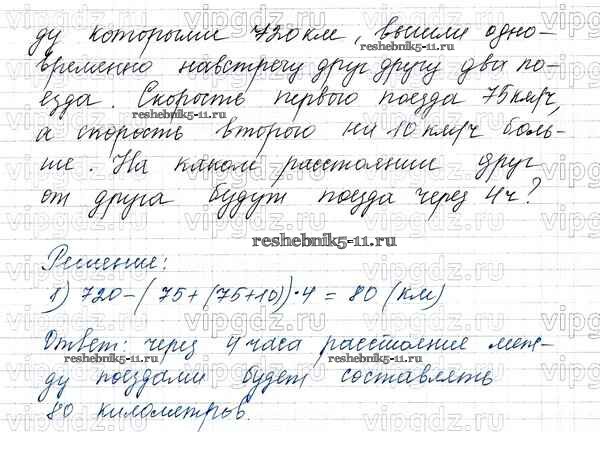 ду которыми 720 км, вышли одно-
временно навстречу друг другу два по-
езда. Скорость первого поезда 75 км/ч,
а скорость второго на 10 км/ч боль-
ше. На каком расстоянии друг
от друга будут поезда через 4ч?
reshebnik5-11.ru
Решение:
1) 720-(75+(75+10))·4 = 80 (км)
Ответ: через 4 часа расстояние меж-
ду поездами будет составлять
80 километров.